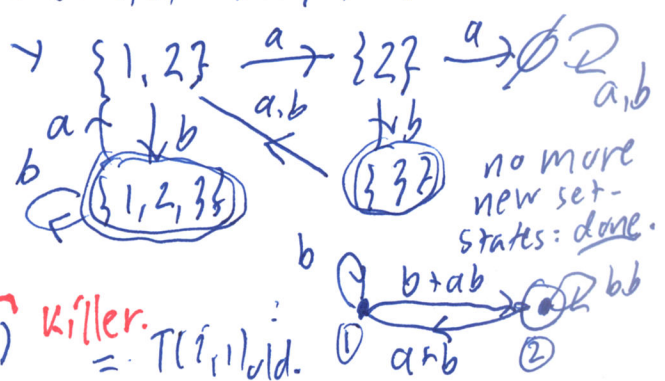 {1,2} a {2} a ∅ a,b
a b a,b b
b {1,2,3} {3}
no more
new set-
states: done.
b b+ab b,b
killer. 1 2
= T(i,1)old. a+b